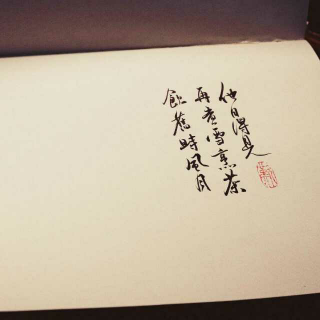 他日得見
再煮雪烹茶
飲舊時風月